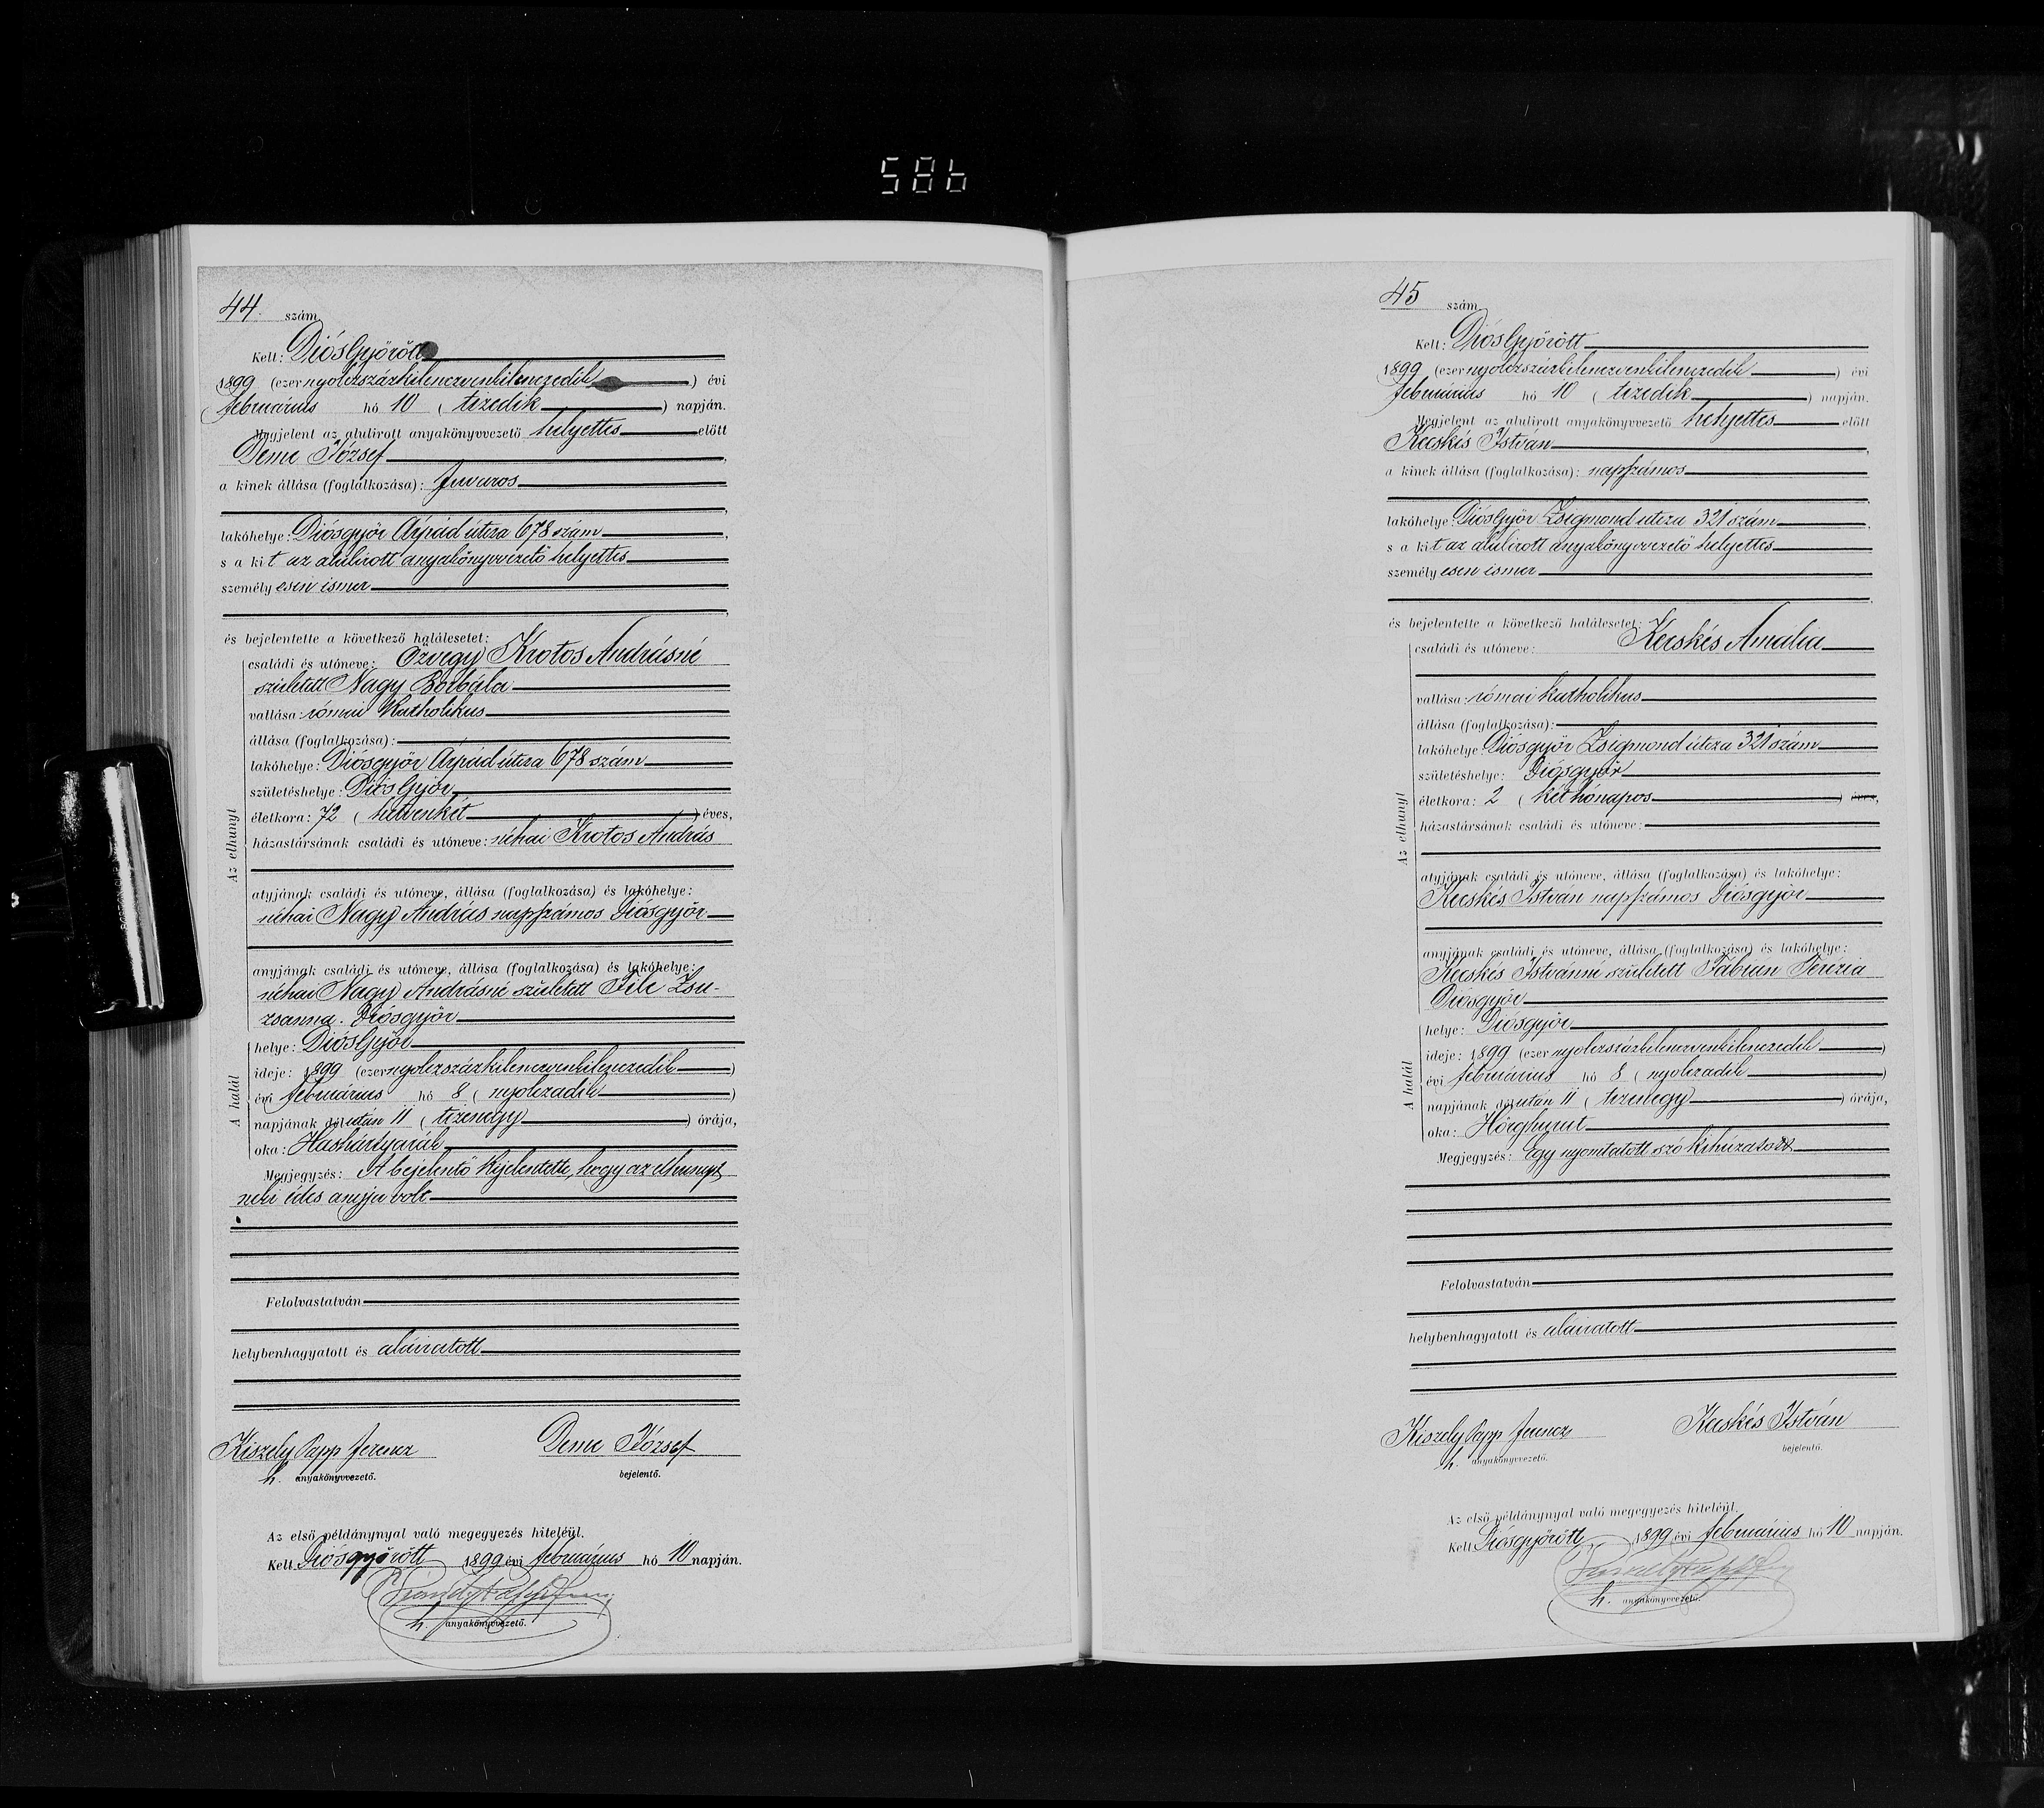 586
44. szám
Kelt: Diósgyőrött
1899 (ezernyolczszázkilenczvenkilenczedik) évi
februárius hó 10 (tizedik) napján.
Megjelent az alulirott anyakönyvvezető helyettes előtt
Deme József,
a kinek állása (foglalkozása): fuvaros
lakóhelye: Diósgyőr Árpád útcza 678 szám,
s a kit az alulirott anyakönyvvezető helyettes
személyesen ismer
és bejelentette a következő halálesetet:
Az elhunyt
családi és utóneve: Özvegy Krotos Andrásné
született Nagy Borbála
vallása: római katholikus
állása (foglalkozása):
lakóhelye: Diósgyőr Árpád útcza 678 szám
születéshelye: Diósgyőr
életkora: 72 (hetvenkét) éves,
házastársának családi és utóneve: néhai Krotos András
atyjának családi és utóneve, állása (foglalkozása) és lakóhelye:
néhai Nagy András napszámos Diósgyőr
anyjának családi és utóneve, állása (foglalkozása) és lakóhelye:
néhai Nagy Andrásné született File Zsu-
zsanna. Diósgyőr
A halál
helye: Diósgyőr
ideje: 1899 (ezernyolczszázkilenczvenkilenczedik)
évi februárius hó 8 (nyolczadik)
napjának délután 11 (tizenegy) órája,
oka: Hashártyarák
Megjegyzés: A bejelentő kijelentette, hogy az elhunyt
neki édes anyja volt
Felolvastatván
helybenhagyatott és aláiratott
Kiszely Papp Ferencz Deme József
h. anyakönyvvezető. bejelentő.
Az első példánynyal való megegyezés hiteléül.
Kelt Diósgyőrött 1899 évi februárius hó 10 napján.
h. anyakönyvvezető.
45 szám
Kelt: Diósgyőrött
1899 (ezernyolczszázkilenczvenkilenczedik) évi
februárius hó 10 (tizedik) napján.
Megjelent az alulirott anyakönyvvezető helyettes előtt
Kecskés István,
a kinek állása (foglalkozása): napszámos
lakóhelye: Diósgyőr Zsigmond útcza 321 szám,
s a kit az alulirott anyakönyvvezető helyettes
személyesen ismer
és bejelentette a következő halálesetet:
Az elhunyt
családi és utóneve: Kecskés Amália
vallása: római katholikus
állása (foglalkozása):
lakóhelye: Diósgyőr Zsigmond útcza 321 szám
születéshelye: Diósgyőr
életkora: 2 (két hónapos) éves,
házastársának családi és utóneve:
atyjának családi és utóneve, állása (foglalkozása) és lakóhelye:
Kecskés István napszámos Diósgyőr
anyjának családi és utóneve, állása (foglalkozása) és lakóhelye:
Kecskés Istvánné született Fábián Terézia
Diósgyőr
A halál
helye: Diósgyőr
ideje: 1899 (ezernyolczszázkilenczvenkilenczedik)
évi februárius hó 8 (nyolczadik)
napjának délután 11 (tizenegy) órája,
oka: Hörghurut
Megjegyzés: Egy nyomtatott szó kihúzatott
Felolvastatván
helybenhagyatott és aláiratott
Kiszely Papp Ferencz Kecskés István
h. anyakönyvvezető. bejelentő.
Az első példánynyal való megegyezés hiteléül.
Kelt Diósgyőrött 1899 évi februárius hó 10 napján.
h. anyakönyvvezető.